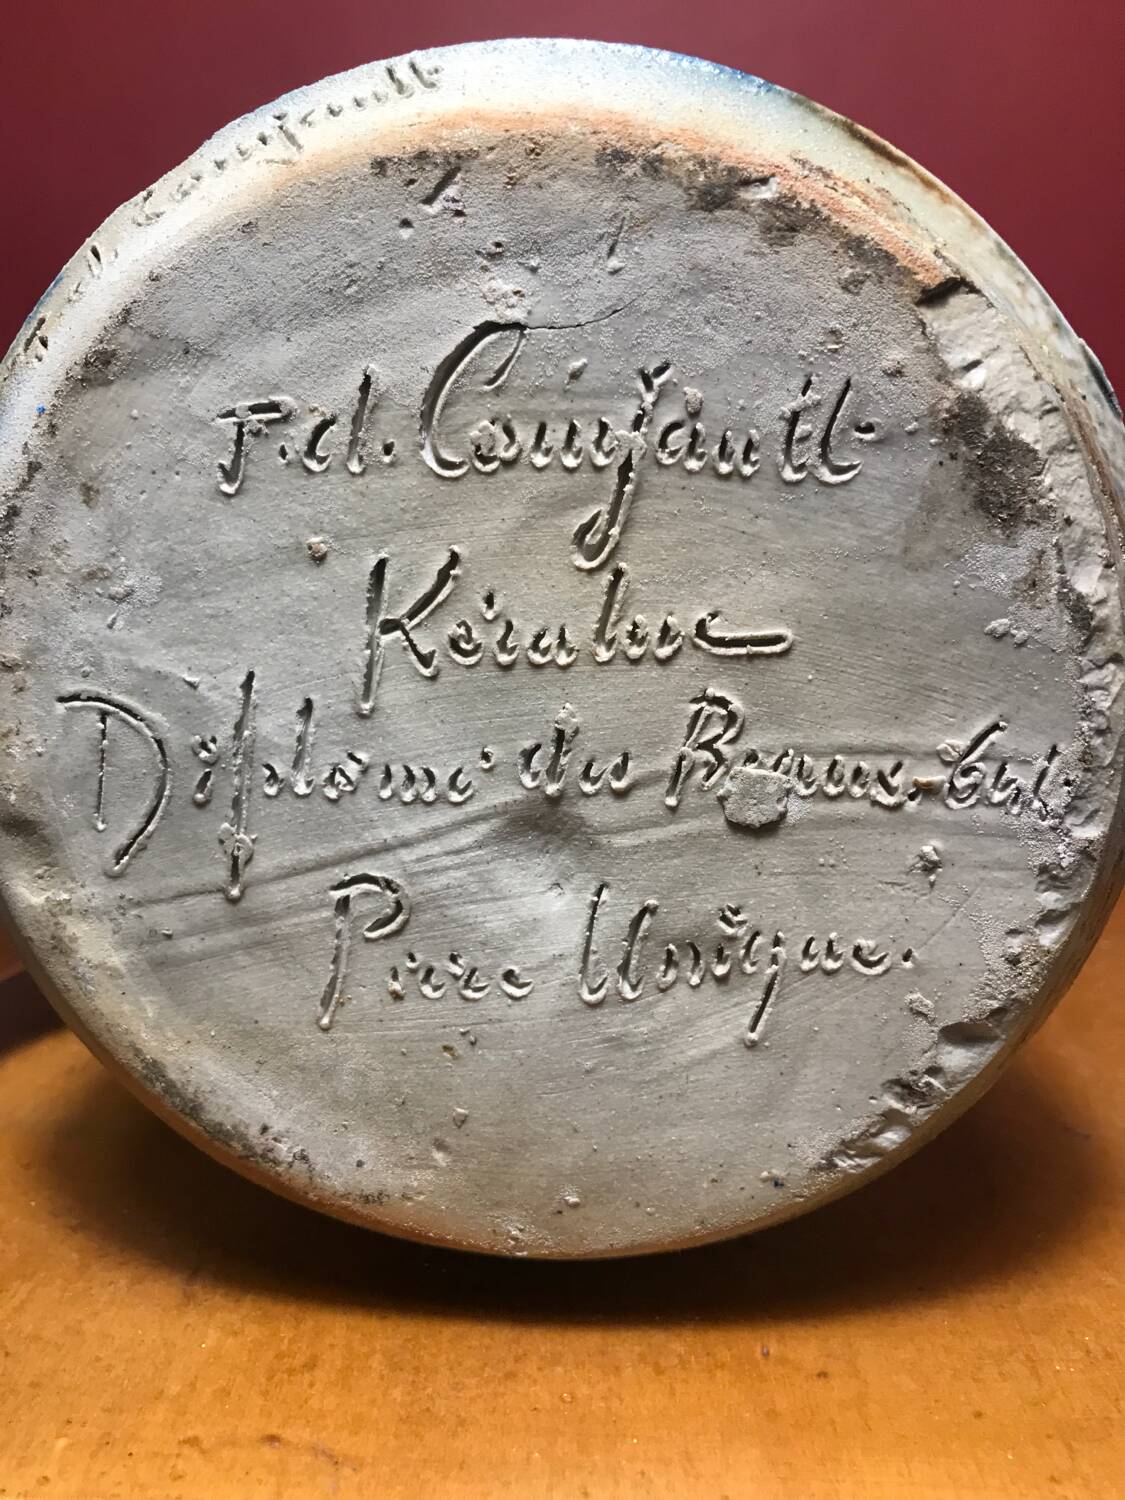 P. d. Coinfault
Kéraluc
Diplomé des Beaux-Arts
Pièce Unique.